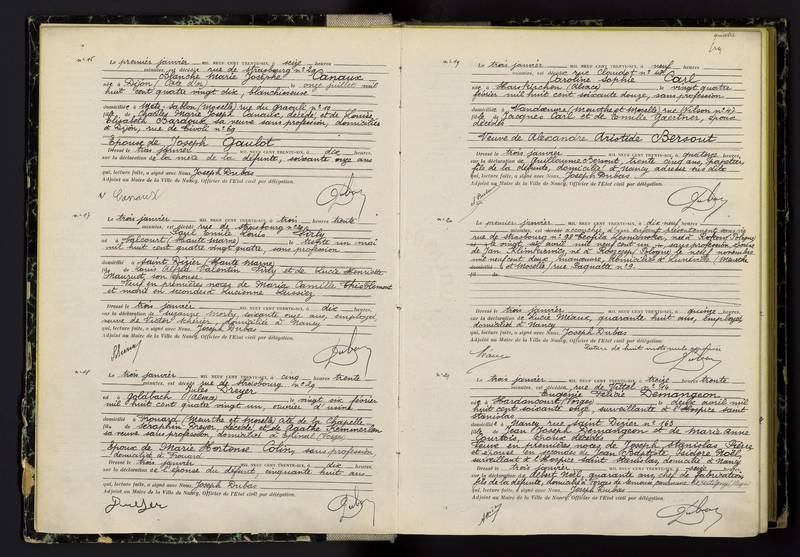 n° 16
Le premier janvier MIL NEUF CENT TRENTE-SIX, à seize heures
minutes, est décédée rue de Strasbourg n° 29
Blanche Marie Josèphe Canaux
née à Dijon (Côte d'Or) le onze juillet mil
huit cent quatre vingt dix, blanchisseuse
domiciliée à Metz-Sablon (Moselle) rue du Graouli n° 10
fille de Charles Marie Joseph Canaux, décédé, et de Louise
Elisabeth sa veuve sans profession, domiciliée
à Dijon, rue de Tivoli n° 69
Epouse de Joseph Gaulot
Dressé le trois janvier MIL NEUF CENT TRENTE-SIX, à dix heures,
sur la déclaration de la mère de la défunte, soixante onze ans
qui, lecture faite, a signé avec Nous, Joseph Dubas
Adjoint au Maire de la Ville de Nancy, Officier de l'Etat civil par délégation.
V Canaux
Dubas
n° 17
Le trois janvier MIL NEUF CENT TRENTE-SIX, à trois heures trente
minutes, est décédé rue de Strasbourg n° 29
Paul Emile Louis Virly
né à Valcourt (Haute Marne) le trente un mai
mil huit cent quatre vingt quatre, sans profession
domicilié à Saint Dizier (Haute Marne)
fils de Louis Alfred Valentin Virly et de Lucie Henriette
son épouse
Veuf en premières noces de Maria Camille
et marié en secondes à Lucienne
Dressé le trois janvier MIL NEUF CENT TRENTE-SIX, à dix heures,
sur la déclaration de Suzanne soixante onze ans, employée
veuve de Victor domiciliée à Nancy
qui, lecture faite, a signé avec Nous, Joseph Dubas
Adjoint au Maire de la Ville de Nancy, Officier de l'Etat civil par délégation.
Dubas
n° 18
Le trois janvier MIL NEUF CENT TRENTE-SIX, à cinq heures trente
minutes, est décédé rue de Strasbourg n° 29
Jules Dreyer
né à Goldbach (Alsace) le vingt six février
mil huit cent quatre vingt un, ouvrier d'usine
domicilié à Frouard (Meurthe et Moselle) de la Chapelle
fils de Séraphin Dreyer, décédé, et de Agathe
sa veuve sans profession, domiciliée à Epinal (Vosges)
Epoux de Marie Hortense Colin, sans profession
domiciliée à Frouard
Dressé le trois janvier MIL NEUF CENT TRENTE-SIX, à dix heures,
sur la déclaration de l'épouse du défunt, cinquante huit ans
qui, lecture faite, a signé avec Nous, Joseph Dubas
Adjoint au Maire de la Ville de Nancy, Officier de l'Etat civil par délégation.
Dubas
quatre
n° 19
Le trois janvier MIL NEUF CENT TRENTE-SIX, à neuf heures
minutes, est décédée rue Claudot n°
Caroline Sophie Carl
née à Harskirchen (Alsace) le vingt quatre
février mil huit cent soixante douze, sans profession
domiciliée à Vandœuvre (Meurthe et Moselle) rue Wilson n° 47
fille de Jacques Carl et de Emilie Gaertner, époux
décédés
Veuve de Alexandre Aristide Bersout
Dressé le trois janvier MIL NEUF CENT TRENTE-SIX, à quatorze heures,
sur la déclaration de Guillaume Bersout, trente cinq ans, papetier,
fils de la défunte, domicilié à Nancy adresse sus dite
qui, lecture faite, a signé avec Nous, Joseph Dubas
Adjoint au Maire de la Ville de Nancy, Officier de l'Etat civil par délégation.
Dubas
n° 20
Le premier janvier MIL NEUF CENT TRENTE-SIX, à dix neuf heures
minutes, est accouchée d'un enfant présentement sans vie
rue de Strasbourg n° née à (Pologne)
le vingt six avril mil neuf cent un, sans profession, épouse
de Jean né à (Pologne) le neuf novembre
mil neuf cent deux, manœuvre, domiciliés à Lunéville (Meurthe
et Moselle) rue n° 9
Dressé le trois janvier MIL NEUF CENT TRENTE-SIX, à quinze heures,
sur la déclaration de Lucie quarante huit ans, employée,
domiciliée à Nancy
qui, lecture faite, a signé avec Nous, Joseph Dubas
Adjoint au Maire de la Ville de Nancy, Officier de l'Etat civil par délégation.
Dubas
n° 21
Le trois janvier MIL NEUF CENT TRENTE-SIX, à treize heures trente
minutes, est décédée, rue de Vittel n°
Eugénie Félicie Demangeon
née à Hardancourt (Vosges) le deux avril mil
huit cent soixante onze, surveillante à l'Hospice Saint
Stanislas
domiciliée à Nancy rue Saint Dizier n° 162
fille de Jean Joseph Demangeon et de Marie Anne
Courtois, époux décédés
Veuve en premières noces de Joseph Stanislas
et épouse en secondes de Jean Baptiste Isidore Noël,
surveillant à l'Hospice Saint Stanislas, domicilié à Nancy
Dressé le trois janvier MIL NEUF CENT TRENTE-SIX, à seize heures,
sur la déclaration de Noël, quarante ans, chef de fabrication
fils de la défunte, domicilié à
qui, lecture faite, a signé avec Nous, Joseph Dubas
Adjoint au Maire de la Ville de Nancy, Officier de l'Etat civil par délégation.
Dubas